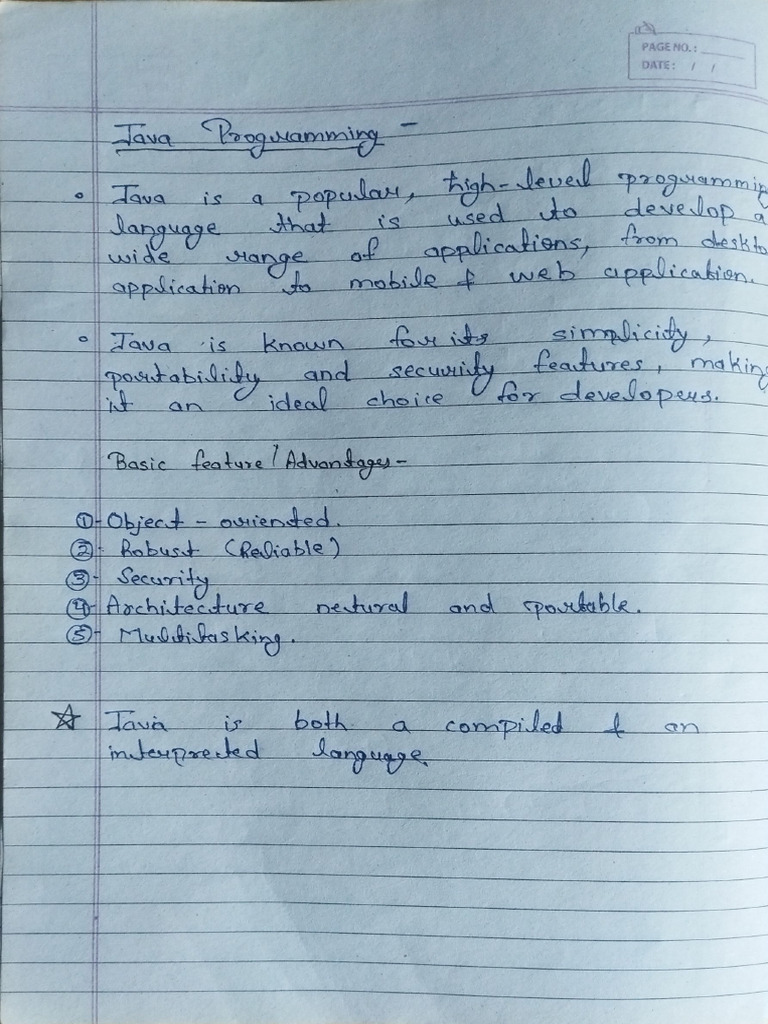 PAGE NO.:
DATE: / /
Java Programming -
• Java is a popular, high-level programming
language that is used to develop a
wide range of applications, from deskto
application to mobile & web application.
• Java is known for its simplicity,
portability and security features, making
it an ideal choice for developers.
Basic feature / Advantages -
①- Object - oriented.
②- Robust (Reliable)
③- Security
④- Architecture netural and portable.
⑤- Multitasking.
☆ Java is both a compiled & an
interpreted language.